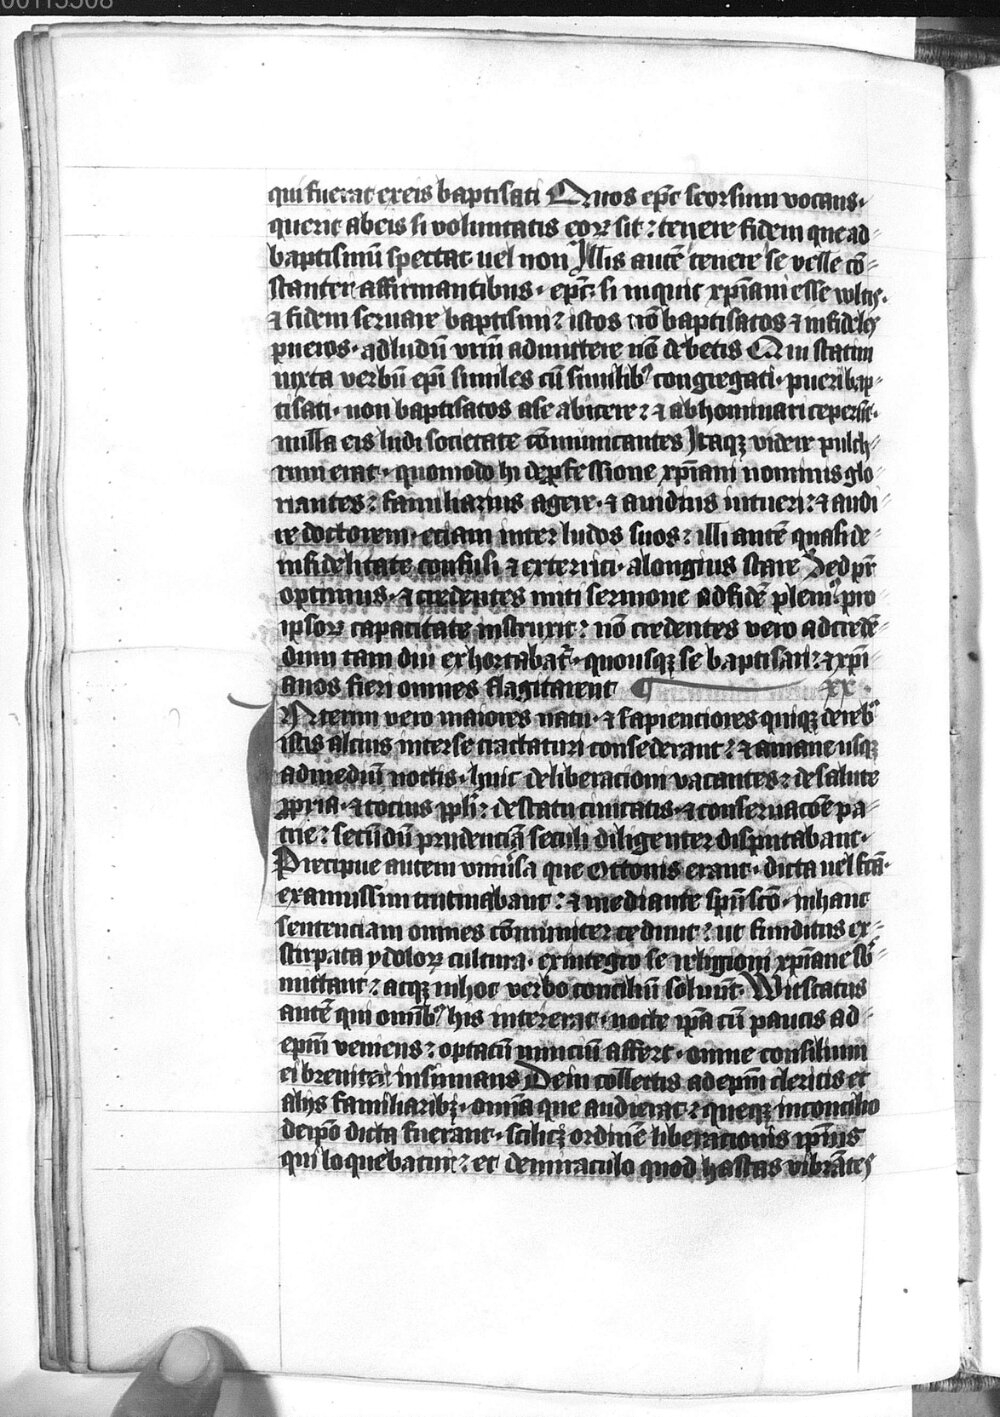 00113308
qui fuerāt ex eis baptisati Quos ep̄c seorsum vocans·
querit ab eis si voluntatis eoꝝ sit: tenere fidem que ad
baptismū spectat uel non Illis autē tenere se velle cō
stanter affirmantibus· ep̄c· si inquit xp̄iani esse wltis·
⁊ fidem seruare baptismi: istos nō baptisatos ⁊ infideles
pueros· ad ludū vrm̄ admittere nō debetis Qui statim
iuxta verbū ep̄i similes cū similibꝰ congregati· pueri bap
tisati· non baptisatos a se abicere: ⁊ abhominari ceperūt·
nulla eis ludi societate cōmunicantes Itaqꝫ videre pulch
rum erat· quomodo hi de ꝓfessione xp̄iani nominis glo
riantes: familiarius agere· ⁊ auidius intueri: ⁊ audi
re doctorem· etiam inter ludos suos: illi autē quasi de
infidelitate confusi ⁊ exterriti· a longius stare Sed pr̄
optimus· ⁊ credentes miti sermone ad fidē pleniꝰ pro
ipsoꝝ capacitate instruxit: nō credentes vero ad credē
dum tam diu exhortabat᷑· quousqꝫ se baptisari: ⁊ xp̄i
anos fieri omnes flagitarent xx·
Interim vero maiores natu· ⁊ sapientiores quiqꝫ de rebꝰ
istis alcius inter se tractaturi consederant: ⁊ a mane usqꝫ
ad mediū noctis· huic deliberacioni vacantes: de salute
ꝓpria· ⁊ tocius ppl̄i: de statu ciuitatis· ⁊ conseruacōe pa
trie: secūdū prudenciā seculi diligenter disputabant·
Precipue autem vniūsa que Ottonis erant· dicta uel fc̄a·
examussim trutinabant: ⁊ mediante spū sc̄o· in hanc
sentenciam omnes cōmuniter cedunt: ut funditus ex
stirpata ydoloꝝ cultura· ex integro se religioni xp̄iane sb̄
mittant: atqꝫ in hoc verbo conciliū soluūt· Witscatus
autē qui omībꝰ his intererat· nocte ip̄a cū paucis ad
ep̄m veniens: optatū nunciū affert· omne consilium
ei breuiter insinuans Dein collectis ad ep̄m clericis et
alijs familiaribꝫ· omīa que audierat: ⁊ queqꝫ in concilio
de ip̄o dicta fuerant· scilicꝫ ordinē liberacionis ip̄ius
qui loquebatur: et de miraculo quod hastas vibrātes